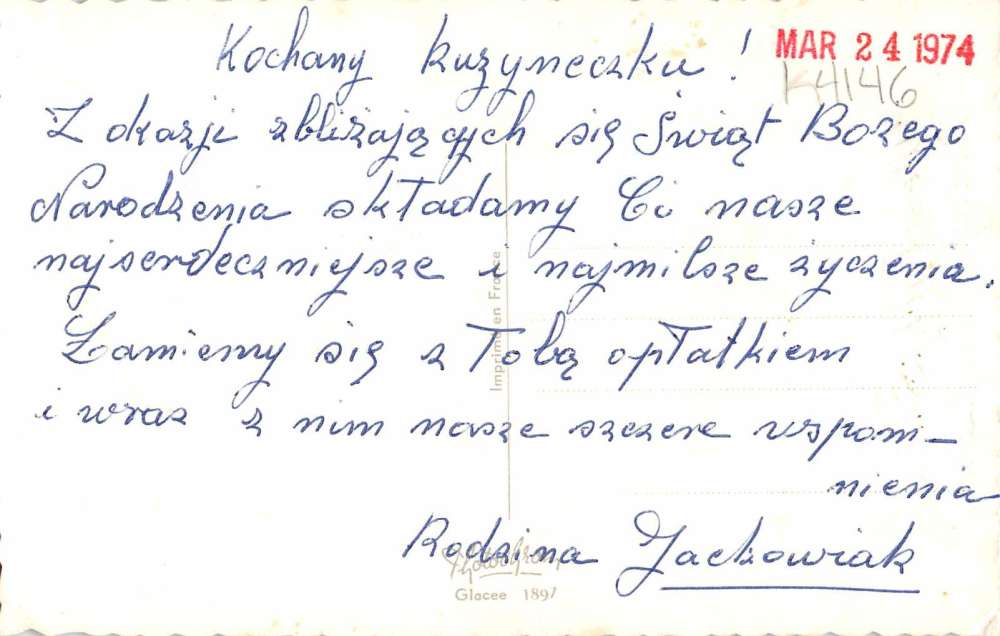 Kochany kuzyneczku!
MAR 24 1974
K4146
Z okazji zbliżających się Świąt Bożego
Narodzenia składamy Ci nasze
najserdeczniejsze i najmilsze życzenia.
Łamiemy się z Tobą opłatkiem
i wraz z nim nasze szczere wspom-
nienia
Rodzina Jackowiak
Imprimé en France
Glacee 1897